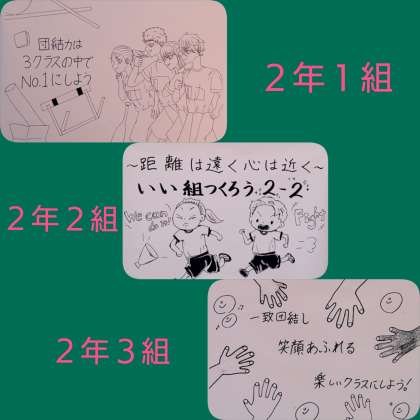 団結力は
3クラスの中で
No.1にしよう
2年1組
～距離は遠く心は近く～
いい組つくろう.2-2
We can do it!
Fight
2年2組
一致団結し
笑顔あふれる
楽しいクラスにしよう!
2年3組